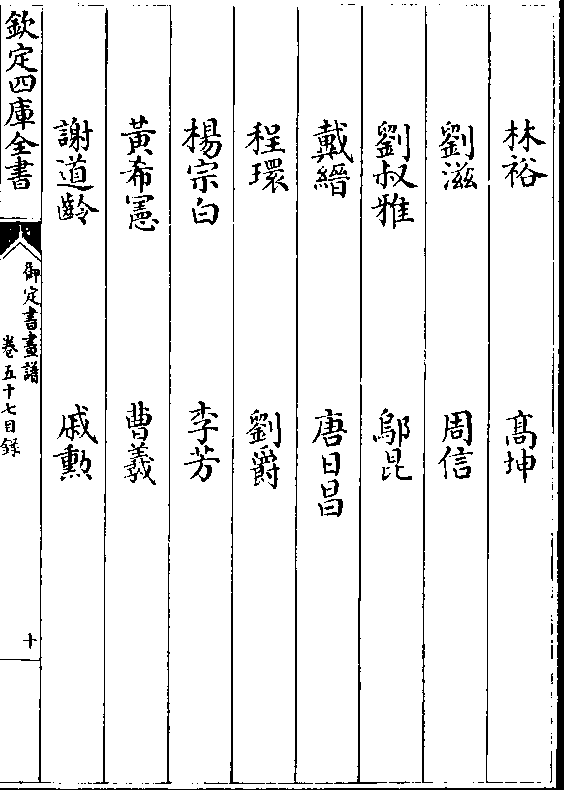 林裕　高坤
劉滋　周信
劉叔雅　鄔昆
戴縉　唐日昌
程環　劉爵
楊宗白　李芳
黃希憲　曹義
謝道齡　戚勲
欽定四庫全書
御定書畫譜
卷五十七目錄
十